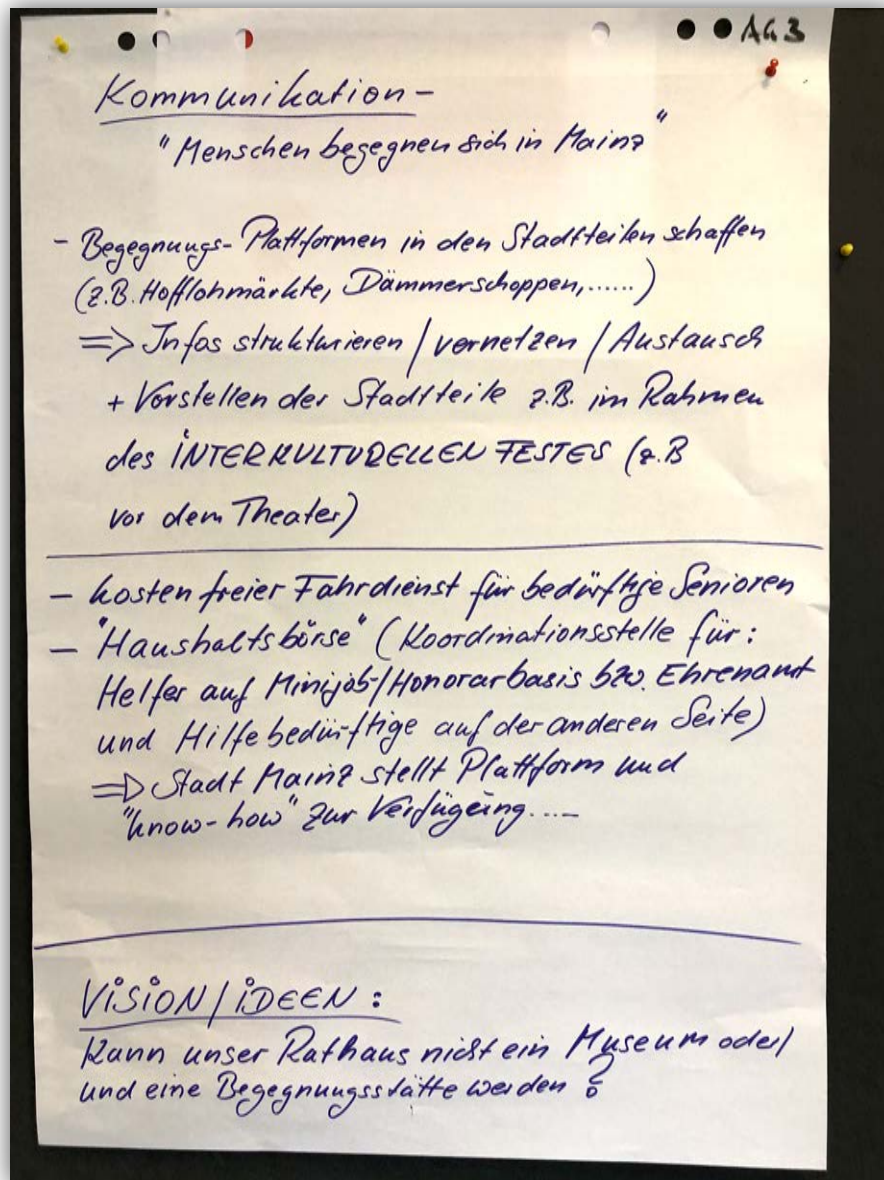 AG 3
Kommunikation -
"Menschen begegnen sich in Mainz"
- Begegnungs-Plattformen in den Stadtteilen schaffen
(z.B. Hofflohmärkte, Dämmerschoppen, ......)
=> Infos strukturieren / vernetzen / Austausch
+ Vorstellen der Stadtteile z.B. im Rahmen
des INTERKULTURELLEN FESTES (z.B
vor dem Theater)
- kostenfreier Fahrdienst für bedürftige Senioren
- "Haushaltsbörse" (Koordinationsstelle für:
Helfer auf Minijob-/Honorarbasis bzw. Ehrenamt
und Hilfebedürftige auf der anderen Seite)
=> Stadt Mainz stellt Plattform und
"know-how" zur Verfügung ....
VISION / IDEEN :
Kann unser Rathaus nicht ein Museum oder/
und eine Begegnungsstätte werden ?